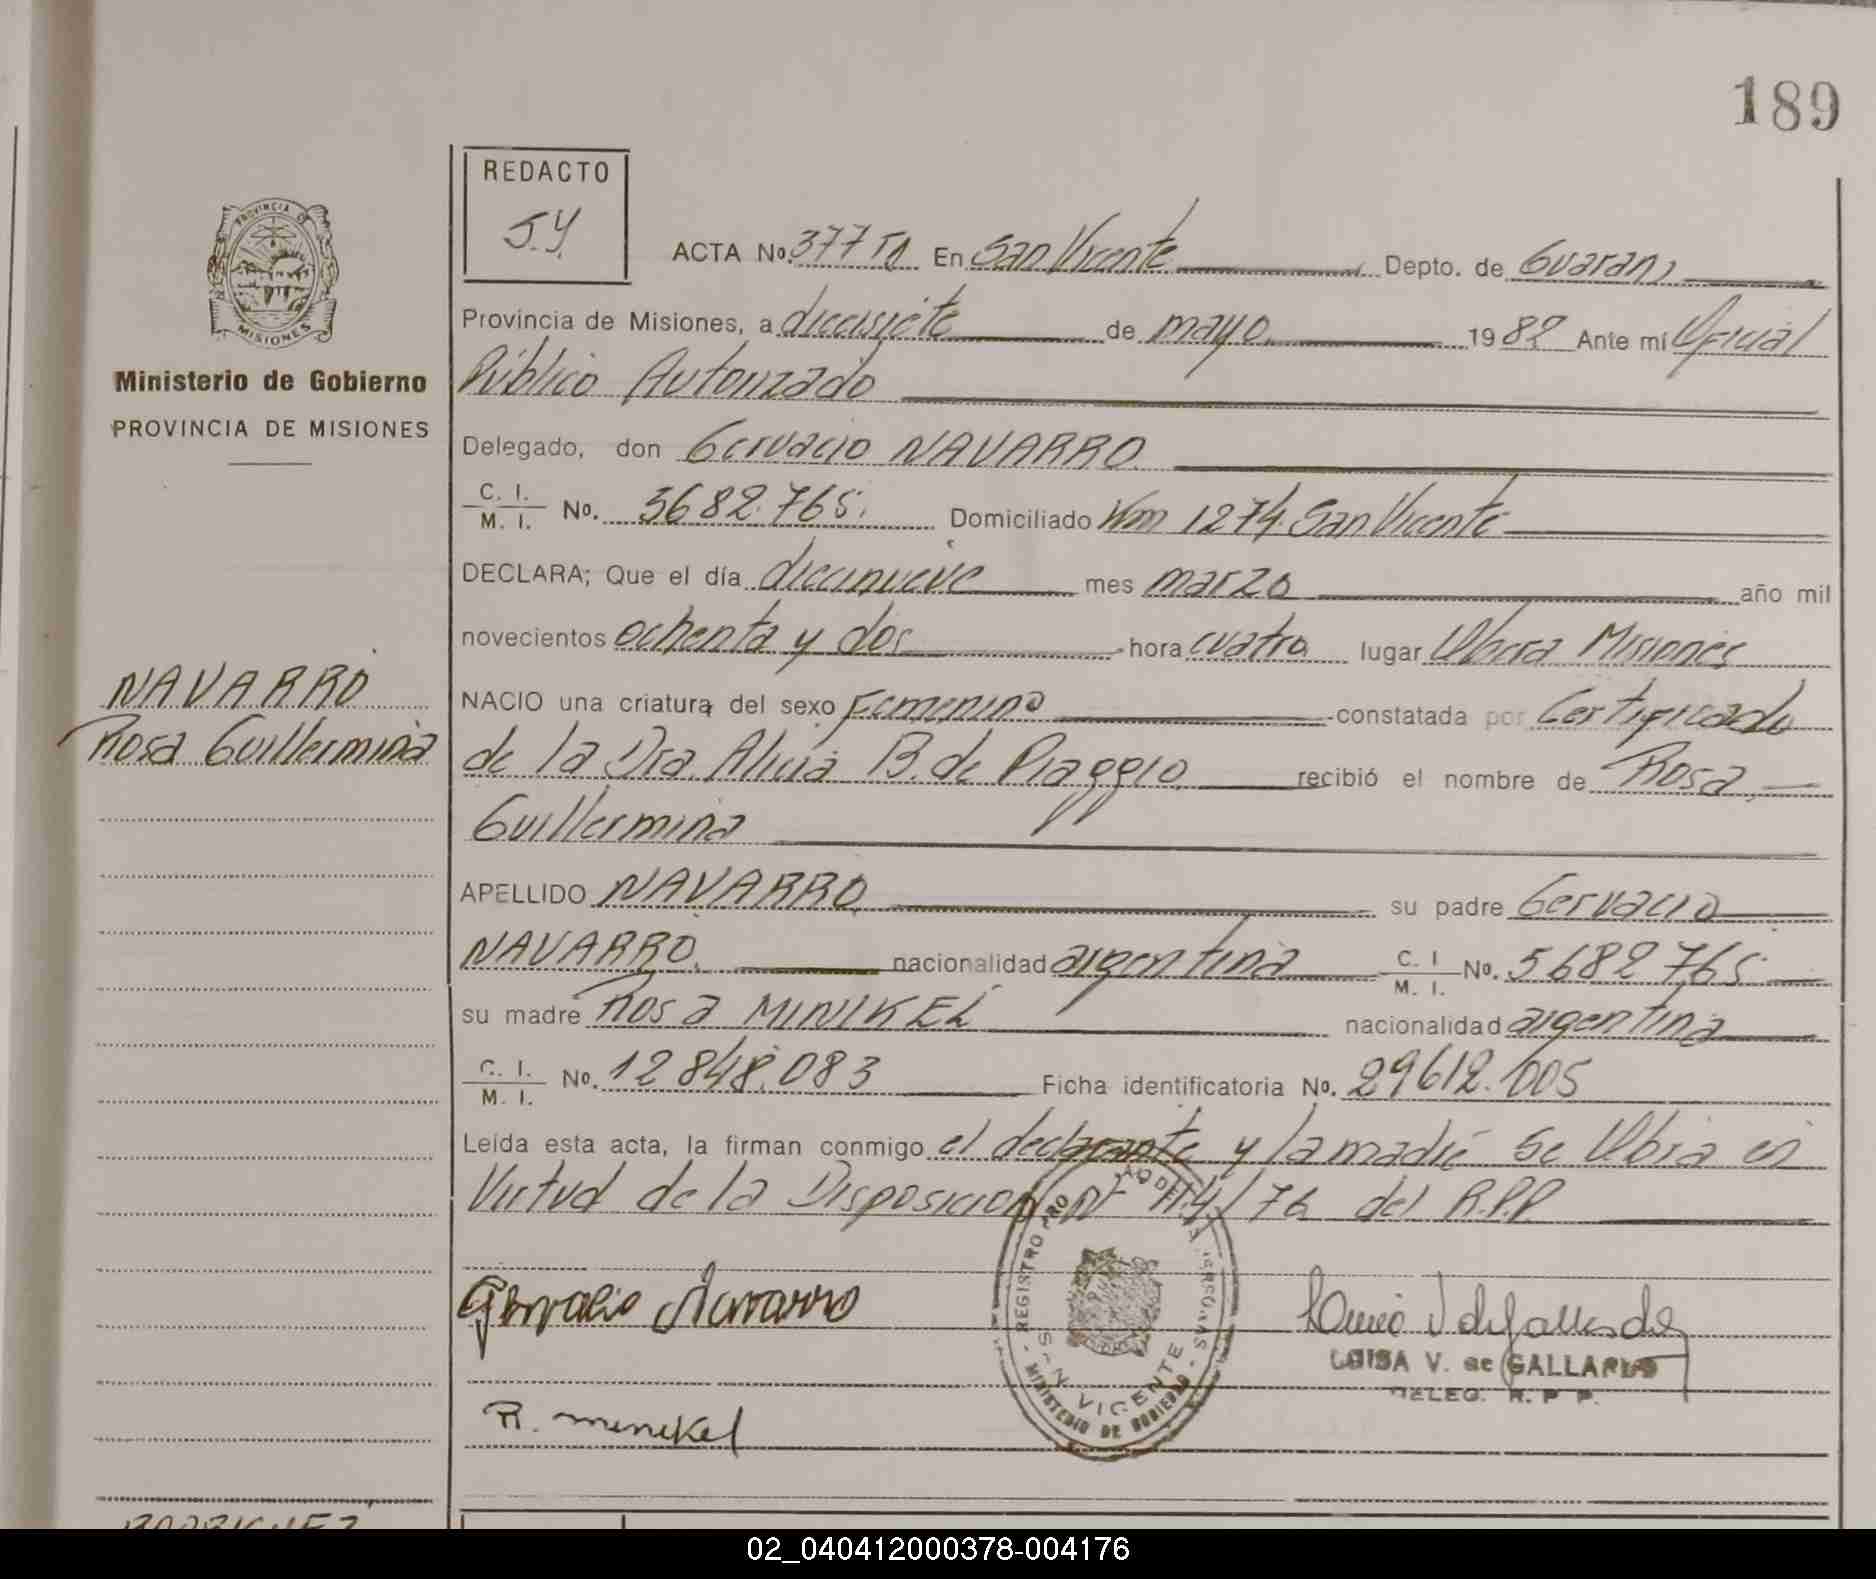 189
REDACTO
J.Y
PROVINCIA DE
MISIONES
ACTA No. 377 T0 En San Vicente Depto. de Guarani
Provincia de Misiones, a diecisiete de mayo 1982 Ante mí Oficial
Público Autorizado
Ministerio de Gobierno
PROVINCIA DE MISIONES
Delegado, don Gervacio NAVARRO
C. I. / M. I. No. 5682.765. Domiciliado Km 1274 San Vicente
DECLARA; Que el día diecinueve mes marzo año mil
novecientos ochenta y dos hora cuatro lugar Obera Misiones
NAVARRO
Rosa Guillermina
NACIO una criatura del sexo Femenino constatada por Certificado
de la Dra. Alicia B. de Piaggio, recibió el nombre de Rosa
Guillermina
APELLIDO NAVARRO su padre Gervacio
NAVARRO. nacionalidad argentina C. I / M. I. No. 5682765
su madre Rosa MINIKEL nacionalidad argentina
C. I. / M. I. No. 12848.083 Ficha identificatoria No. 29612.005
Leída esta acta, la firman conmigo el declarante y la madre Se Obra en
Virtud de la Disposicion Nº 114/76 del R.P.P.
Gervacio Navarro
REGISTRO PRO
SAN VICENTE
MINISTERIO DE GOBIERNO
LUISA V. de GALLARDO
DELEG. R. P P.
R. minikel
RODRIGUEZ
02_040412000378-004176